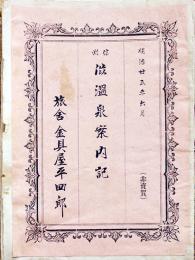 明治廿五年六月
信州
澁温泉案内記
旅舎金具屋平四郎
(非賣質)